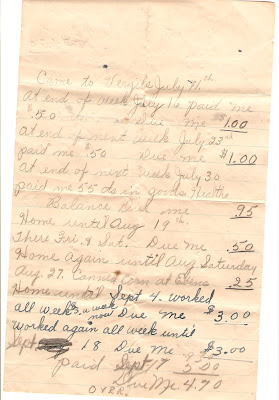 Came to Vergils July 11th
At end of week July 16 paid me
$.50 Due Me $1.00
at end of next week July 23rd
paid me $.50 Due Me $1.00
at end of next week July 30
paid me 55 cts in goods
Balance due me .95
Home until Aug 19th.
There Fri. & Sat. Due Me .50
Home Again until Aug Saturday
Aug 27. Canned Corn at .25
Home until Sept 4. worked
all week $3. a week now Due Me $3.00
worked again all week until
Sept 18 Due Me $3.00
paid Sept 17 5.00
Due Me 4.70
OVER.